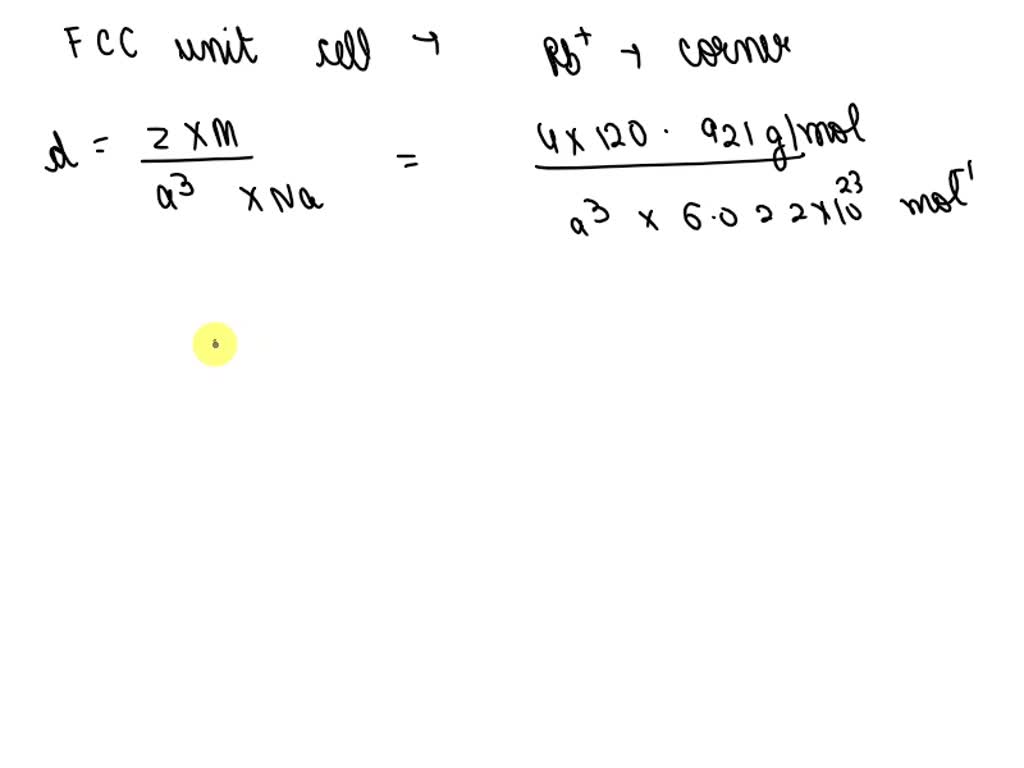 FCC unit cell → Rb⁺ → corner
d = Z × M / a³ × Na = 4 × 120.921 g/mol / a³ × 6.022 × 10²³ mol⁻¹